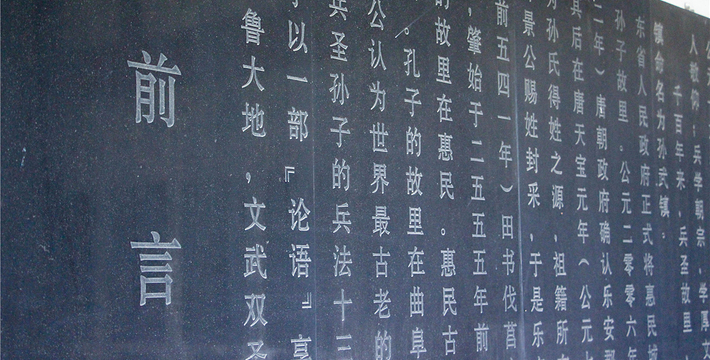 前言
鲁大地，文武双圣
以一部『论语』享
兵圣孙子的兵法十三
公认为世界最古老的
。孔子的故里在曲阜
的故里在惠民。惠民古
，肇始于二五五五年前
前五四一年）田书伐莒
景公赐姓封采，于是乐
为孙氏得姓之源，祖籍所
其后在唐天宝元年（公元
二年）唐朝政府确认乐安郡
孙子故里。公元二零零六年
东省人民政府正式将惠民城
镇命名为孙武镇。
千百年来，兵圣故里
人敬仰；兵学朝宗，学